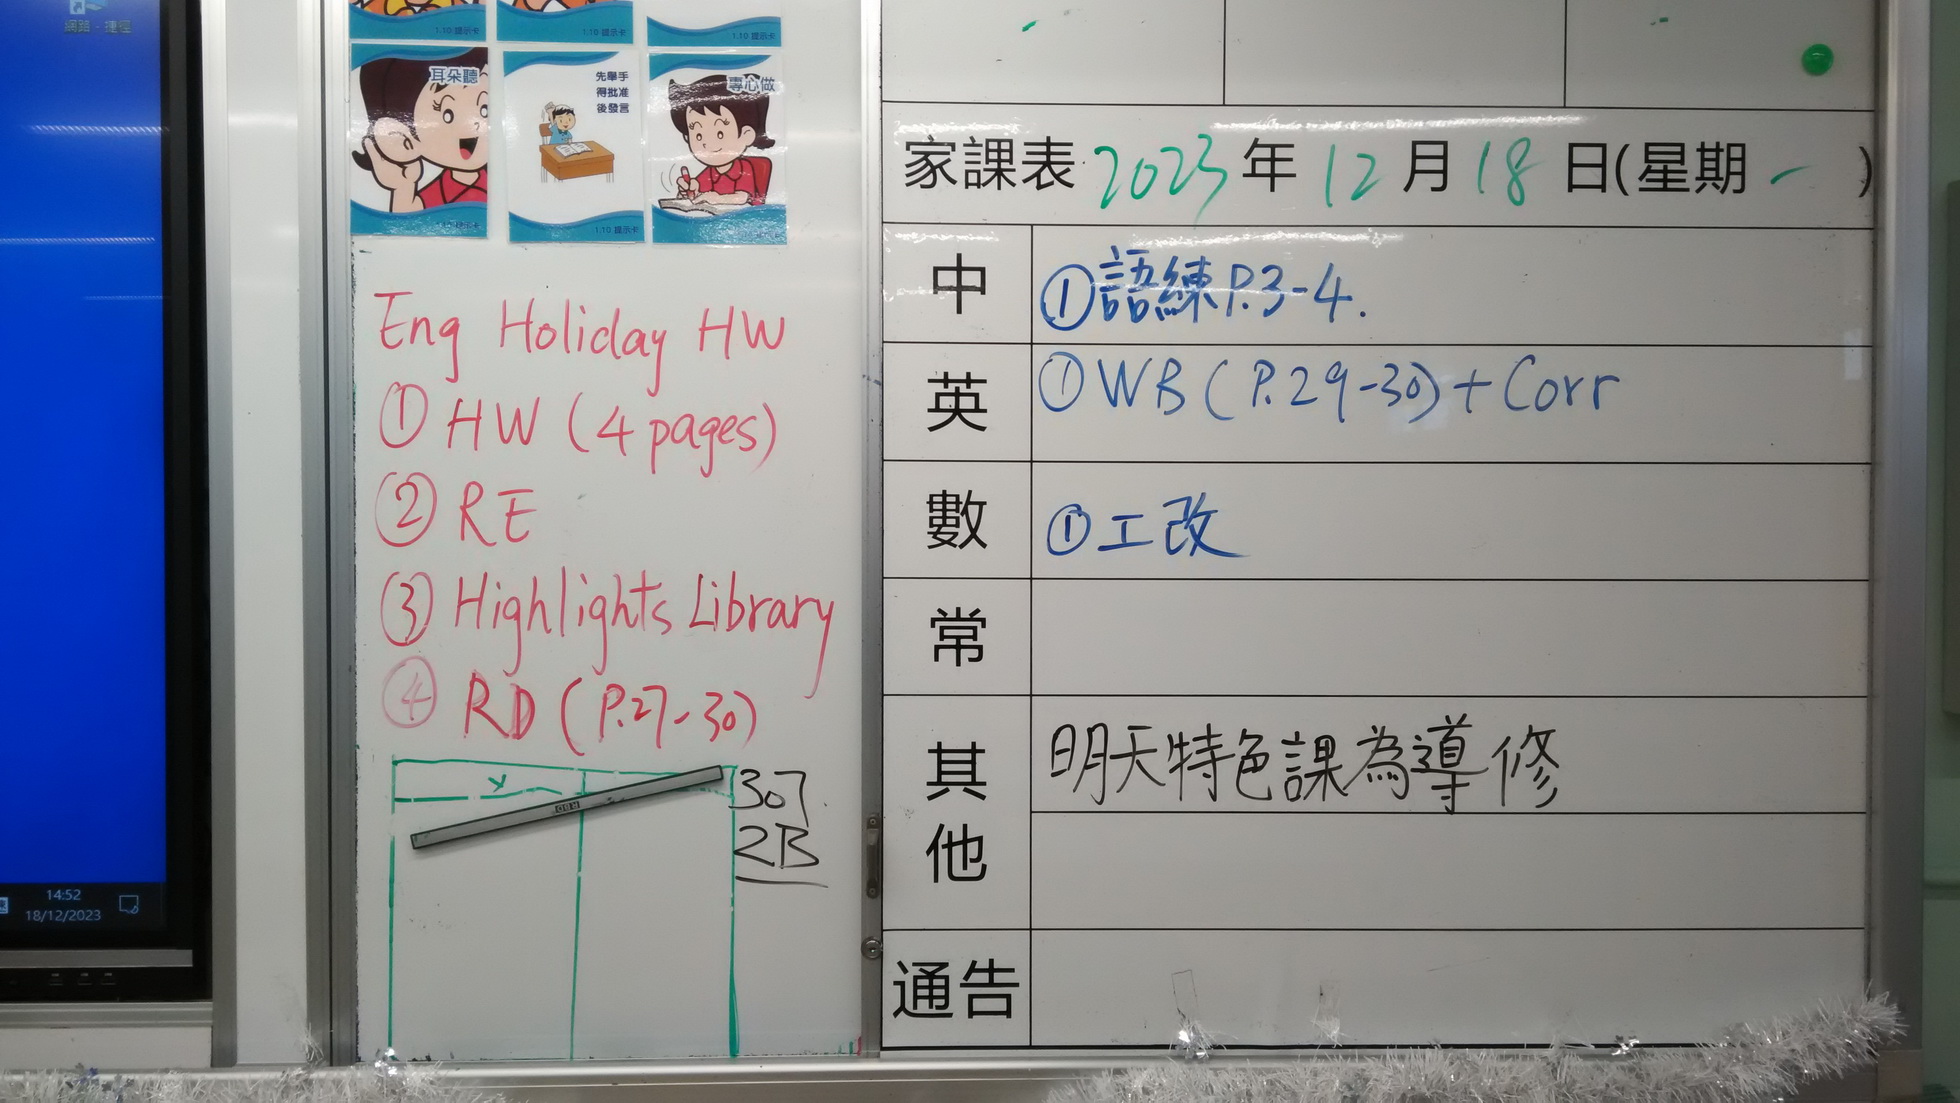 網路 - 捷徑
1.10 提示卡
1.10 提示卡
1.10 提示卡
耳朵聽
先舉手
得批准
後發言
專心做
1.10 提示卡
1.10 提示卡
Eng Holiday HW
① HW (4 pages)
② RE
③ Highlights Library
④ RD (P.27-30)
307
2B
14:52
18/12/2023
家課表 2023 年 12 月 18 日(星期 一 )
中 ①語練P.3-4.
英 ①WB (P.29-30) + Corr
數 ①工改
常
其他 明天特色課為導修
通告